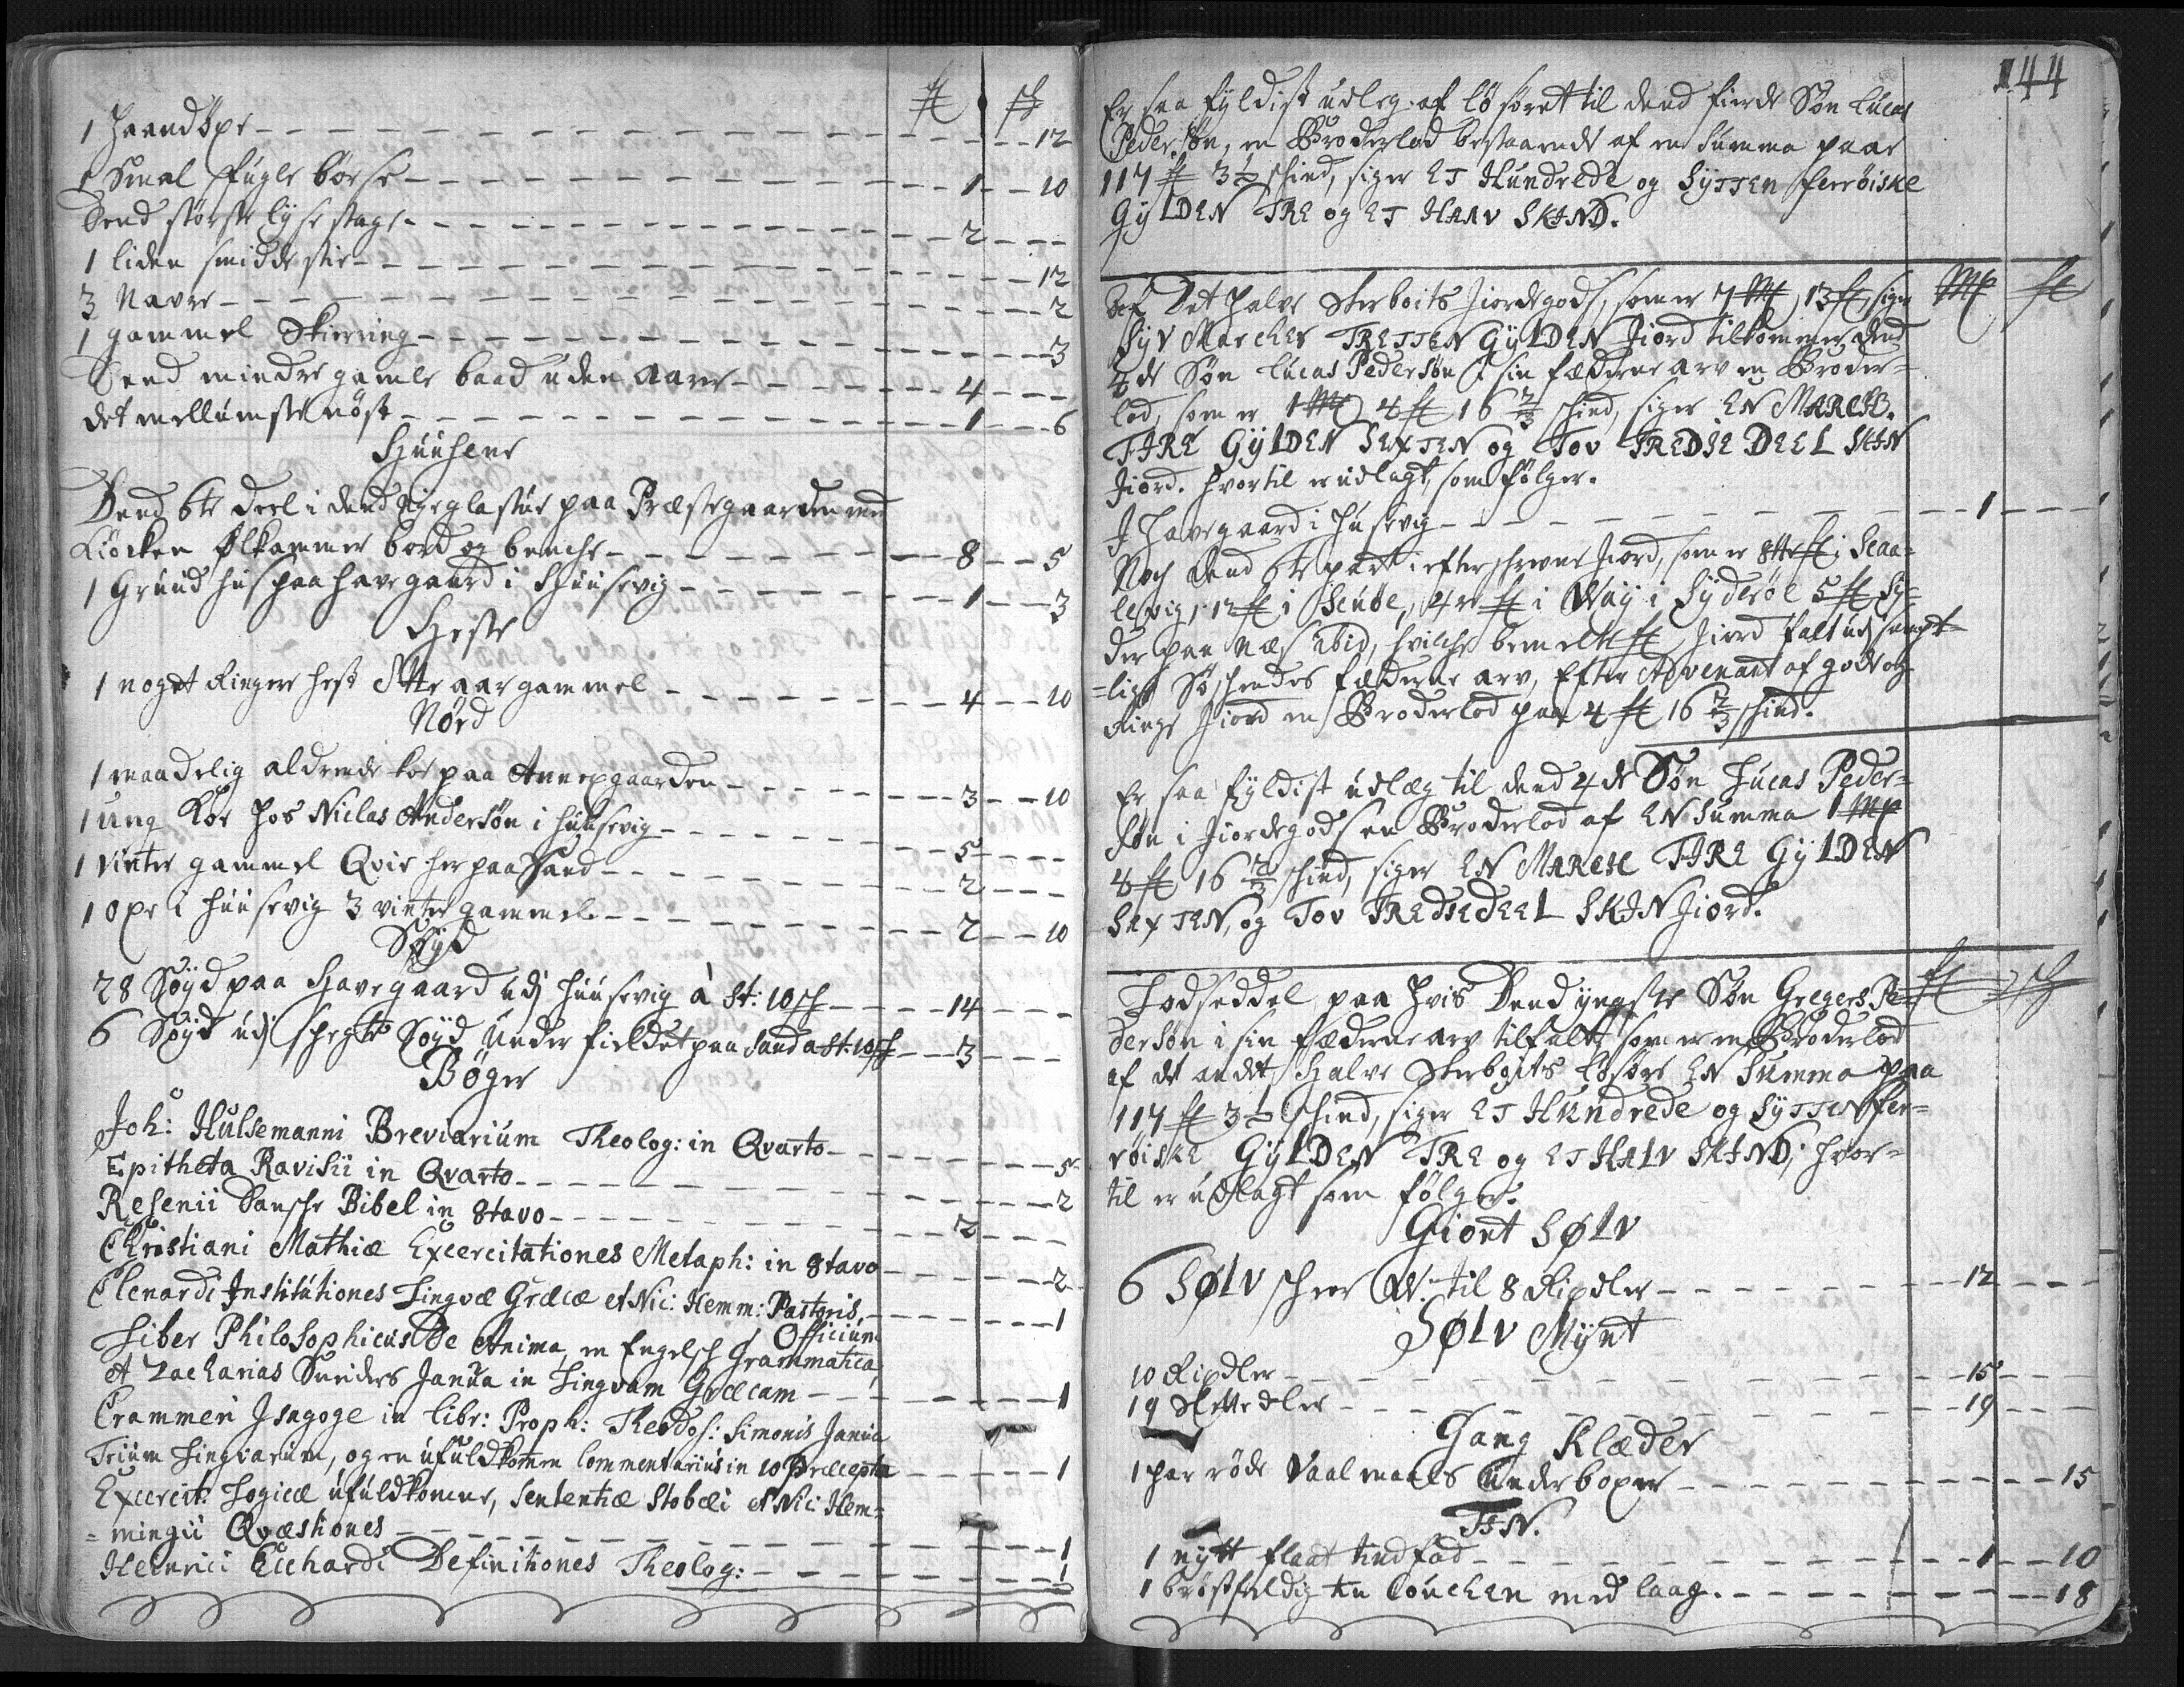 f sh
1 Haandöxe 12
1 Smal fugle börse 1 10
Dend störste lyse stage 2
1 liden smidde stie 12
3 Navre 2
1 gammel Skierring 3
Dend mindre gamle baad uden aarer 4
det mellumste nöst 1 6
Huusene
Dend 6te deel i dend Nye glastue paa Præstegaarden med
Kiöcken Ølkammer bord og benche 8 5
1 Grund hus paa Havegaard i Huusevig 1 3
Heste
1 noget Ringere hest Otte aar gammel 4 10
Nörd
1 maadelig aldrende koe paa Annexgaarden 3 10
1 ung Koe hos Niclas Andersön i Huusevig 5
1 vinter gammel Qvie her paa Sand 2
1 Oxe i Huusevig 3 vinter gammel 2 10
Söyd
28 Söyd paa Havegaard udj Huusevig à St: 10 sh 14
6 Söyd udj schegte Söyd under fieldet paa Sand a St: 10 sh 3
Böger
Joh: Hulsemanni Breviarium Theolog: in Qvarto 5
Epitheta Ravisii in Qvarto 2
Resenii Dansche Bibel in 8tavo 2
Christiani Mathiæ Excercitationes Metaph: in 8tavo 2
Clenardi Institutiones Lingvæ Græcæ et Nic: Hemm: Pastoris 1
Officium
Liber Philosophicus De Anima, en Engelsch Grammatica,
et Zacharias Sniders Janua in Lingvam Græcam 1
Crammeri Isagoge in libr: Proph: Theodos: Simonis Janua
Trium Lingvarum, og en ufuldkommen Commentarius in 10 Præcepta 1
Excercit: Logicæ ufuldkomne, Sententiæ Stobæi et Nic: Hem=
=mingii Qvæstiones 1
Heinrici Eichardi Definitiones Theolog: 1
144
Er saa fyldist udleg af lösöret til dend fierde Sön Lucas
Pedersön, en Broderlod bestaaende af en Summa paa
117 f 3½ schind, siger ET Hundrede og SYTTEN ferröiske
GYLDEN TRE og ET HALV SKIND.
Af Det halve Sterboits Jiordegods, som er 7 M 13 f, siger M f
Syv Marcher TRETTEN GYLDEN Jiord tilkommer dend
4de Sön Lucas Pedersön i sin fæderne arv en Broder=
lod, som er 1 M 4 f 16 2/3 schind, siger EN MARCH.
FIRE GYLDEN SEXTEN og Tov TREDIE DEEL SKIN
Jiord. hvortil er udlagt, som fölger.
I Havegaard i Husevig 1
Noch dend 6te part i efterschrevne Jiord, som er 8tte f i Scaa=
levig, 12 f i Scuöe, 4re f i Waÿ i Syderöe 5 f Sy=
der paa Næs ibid, hvilche bemelte f Jiord falt udj sampt=
=lige Söschendes fæderne arv, Efter Advenant af gode og
Ringe Jiord en Broderlod paa 4 f 16 2/3 schind.
Er saa fyldist udlæg til dend 4de Sön Lucas Peder=
sön i Jiordegods en Broderlod af EN Summa 1 M
4 f 16 2/3 schind, siger EN MARCH FIRE GYLDEN
SEXTEN, og Tov TREDIEDEEL SKIN Jiord.
Lodseddel paa hvis Dend yngste Sön Gregers Pe= f sh
dersön i sin fæderne arv tilfalt, som er en Broderlod
af det andet Halve Sterboits lösöre EN Summa paa
117 f 3½ schind, siger ET Hundrede og SYTTEN fer=
röiske GYLDEN TRE og ET HALV SKIND, hvor=
til er udlagt som fölger.
Giort SØLV
6 SØLV scheer W: til 8 Rixdler 12
SØLV Mynt
10 Rixdler 15
19 Slettedler 19
Gang Klæder
1 par röde Vaalmaels underboxer 15
TIN.
1 nytt flaat tindfad 1 10
1 bröstfeldig tin Couchen med laag. 18